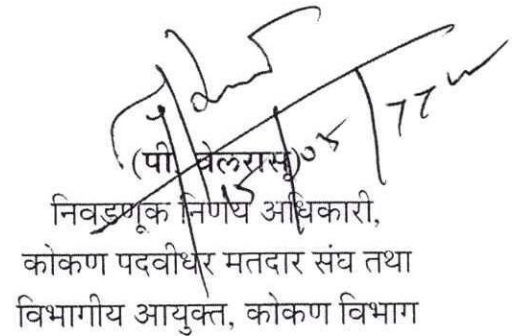 (पी. वेलरासू)
निवडणूक निर्णय अधिकारी,
कोकण पदवीधर मतदार संघ तथा
विभागीय आयुक्त, कोकण विभाग